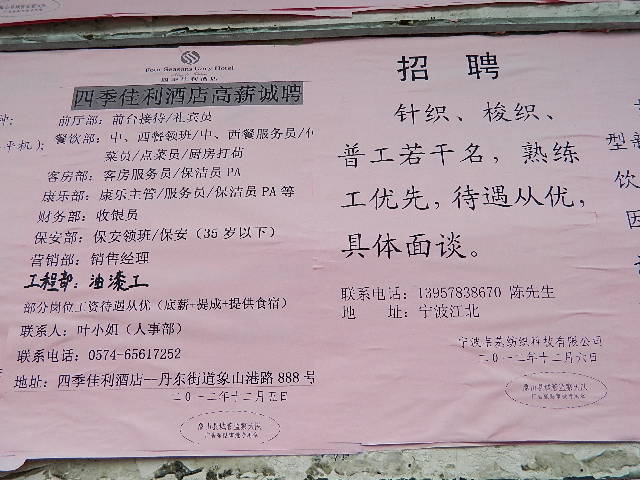 Four Seasons Gary Hotel
四季佳利酒店
四季佳利酒店高薪诚聘
前厅部：前台接待/礼宾员
餐饮部：中、西餐领班/中、西餐服务员/
菜员/点菜员/厨房打荷
客房部：客房服务员/保洁员 PA
康乐部：康乐主管/服务员/保洁员 PA 等
财务部：收银员
保安部：保安领班/保安（35 岁以下）
营销部：销售经理
工程部：油漆工
部分岗位工资待遇从优（底薪+提成+提供食宿）
联系人：叶小姐（人事部）
联系电话：0574-65617252
地址：四季佳利酒店—丹东街道象山港路 888 号
二0一二年十二月五日
象山县城管监察大队
招 聘
针织、梭织、
普工若干名，熟练
工优先，待遇从优，
具体面谈。
联系电话：13957838670 陈先生
地 址：宁波江北
纺织科技有限公司
二0一二年十二月六日
象山县城管监察大队
平机）：
型
饮
因